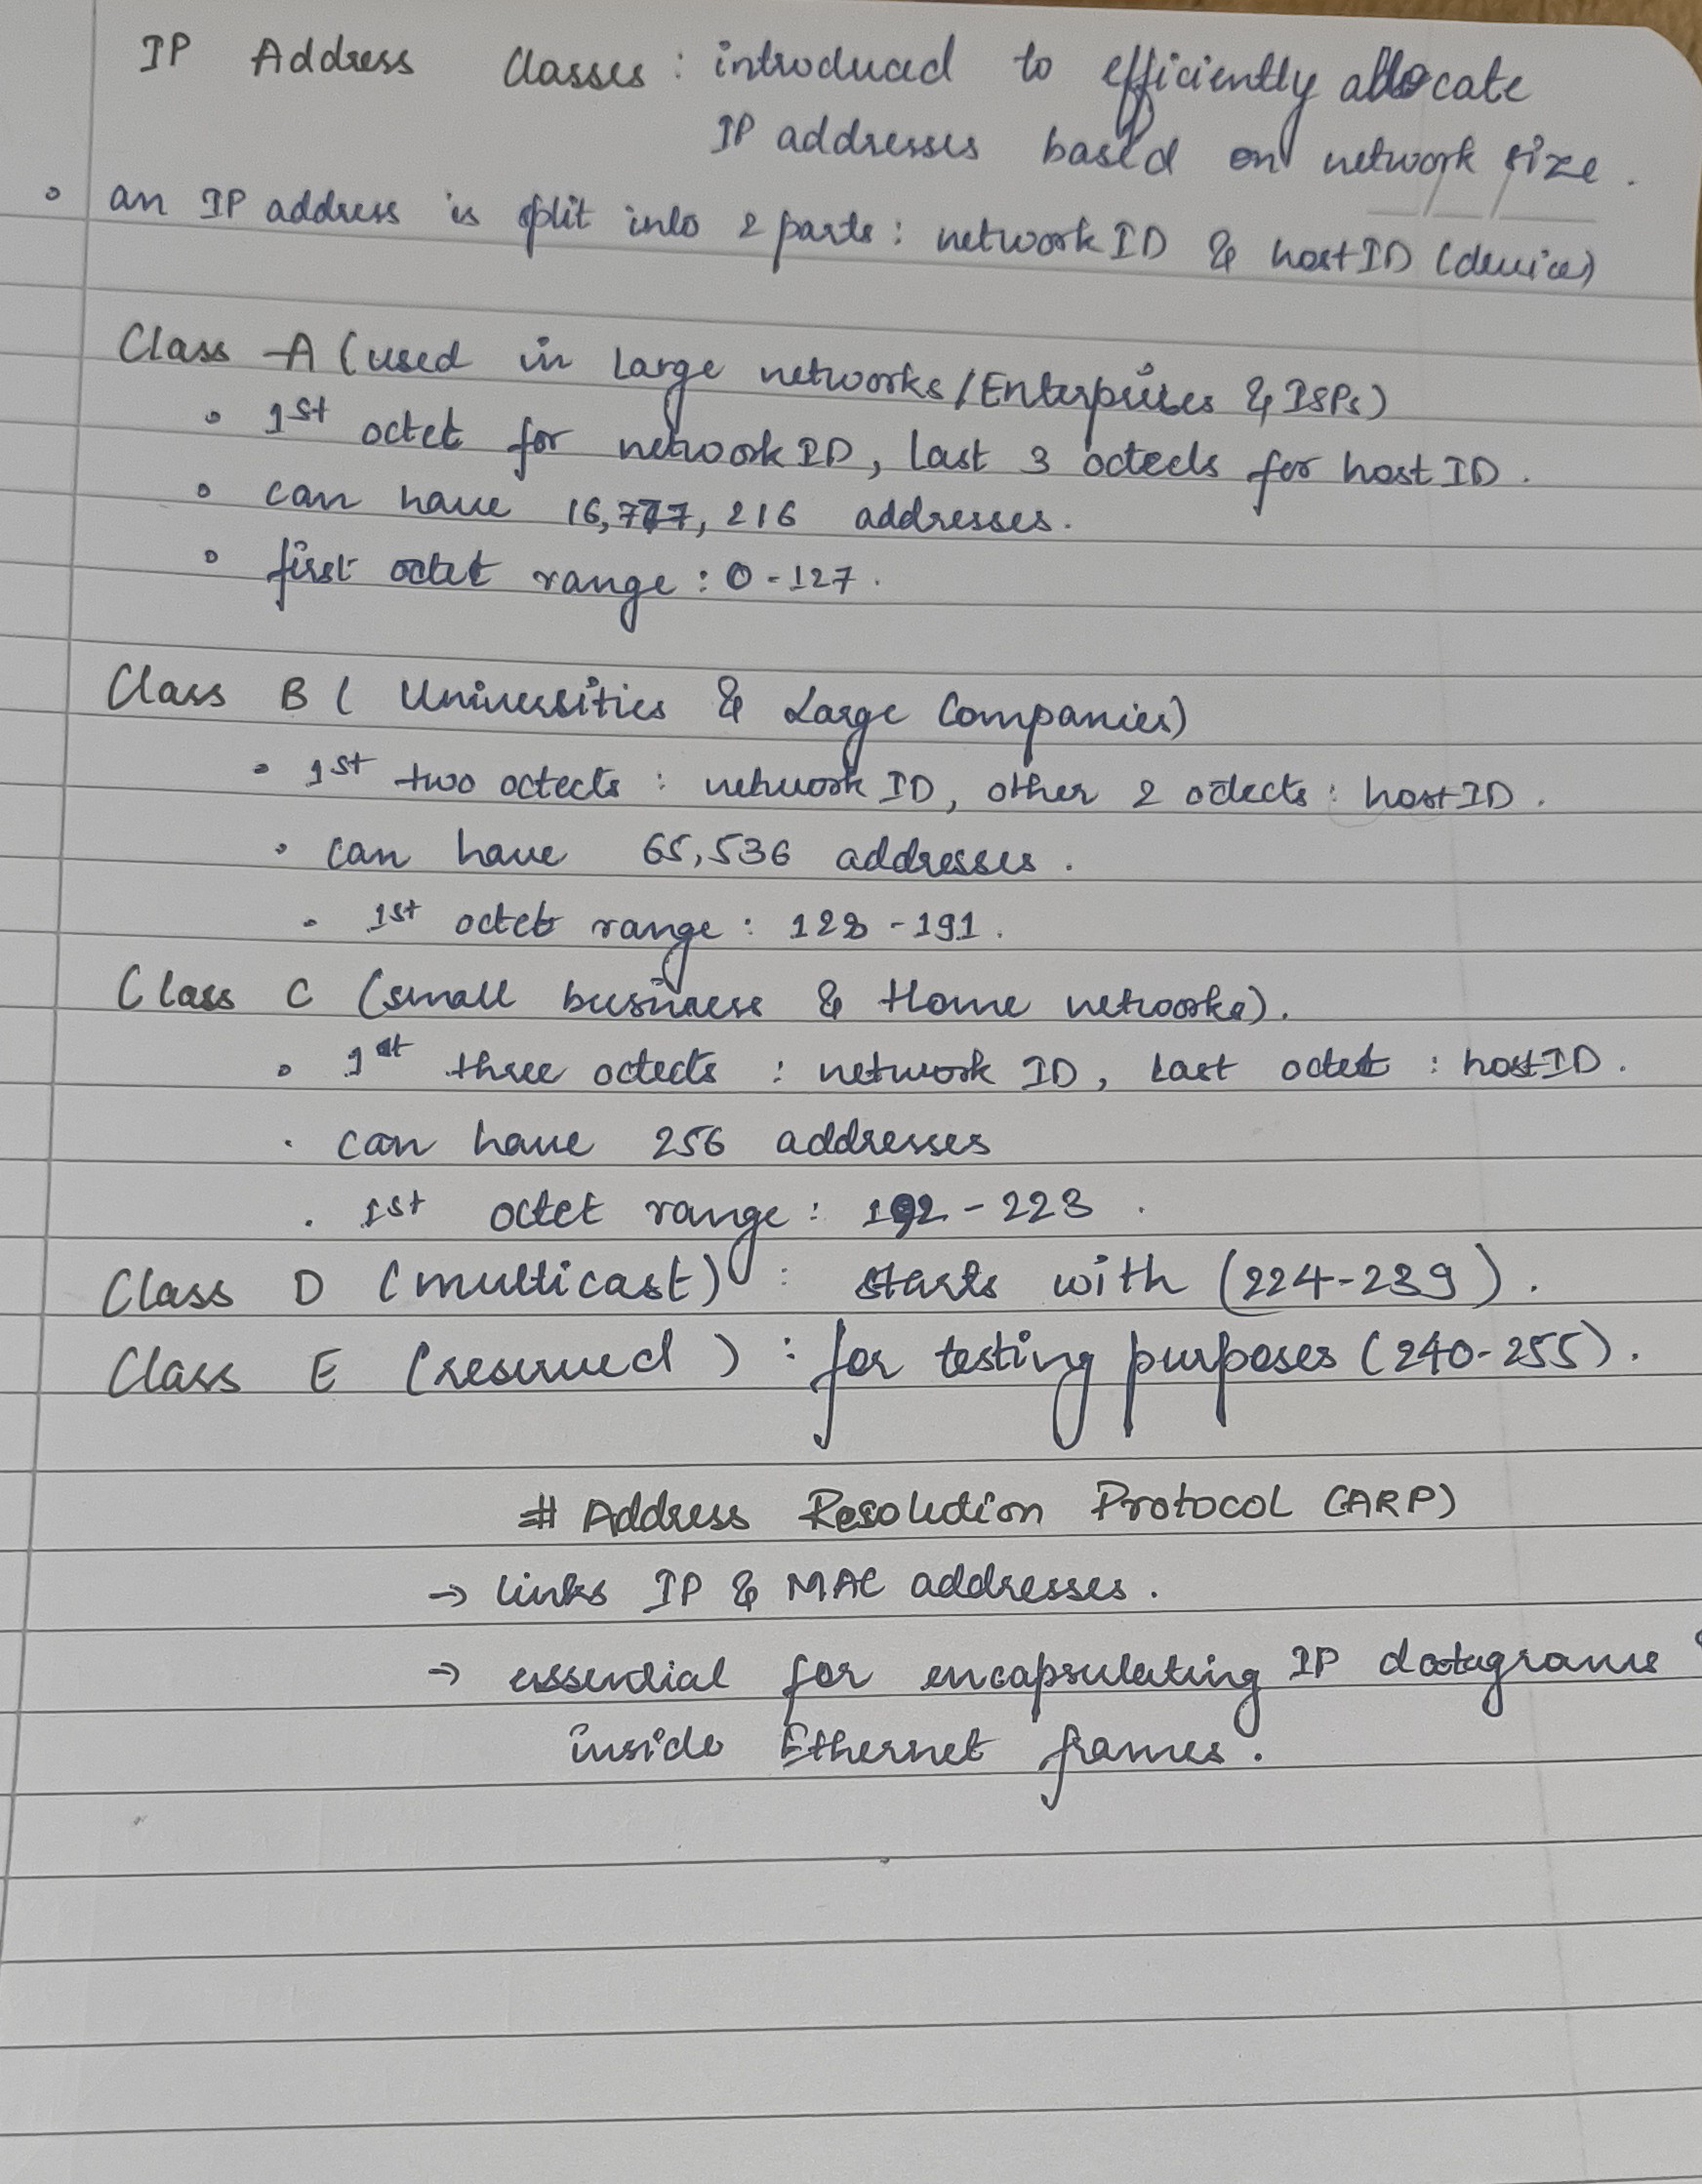 IP Address Classes : introduced to efficiently allocate
IP addresses based on network size.
◦ an IP address is split into 2 parts : network ID & host ID (device)
Class A (used in large networks/Enterprises & ISPs)
◦ 1st octet for network ID, last 3 octects for host ID.
◦ can have 16,777,216 addresses.
◦ first octet range : 0-127.
Class B ( Universities & Large Companies)
◦ 1st two octects : network ID, other 2 octects : host ID.
◦ can have 65,536 addresses.
◦ 1st octet range : 128 - 191.
Class C (small business & Home networks).
◦ 1st three octects : network ID, last octet : host ID.
· can have 256 addresses
· 1st octet range : 192 - 223.
Class D (multicast) : starts with (224-239).
Class E (reserved) : for testing purposes (240-255).
# Address Resolution Protocol (ARP)
→ links IP & MAC addresses.
→ essential for encapsulating IP datagrams
inside Ethernet frames.